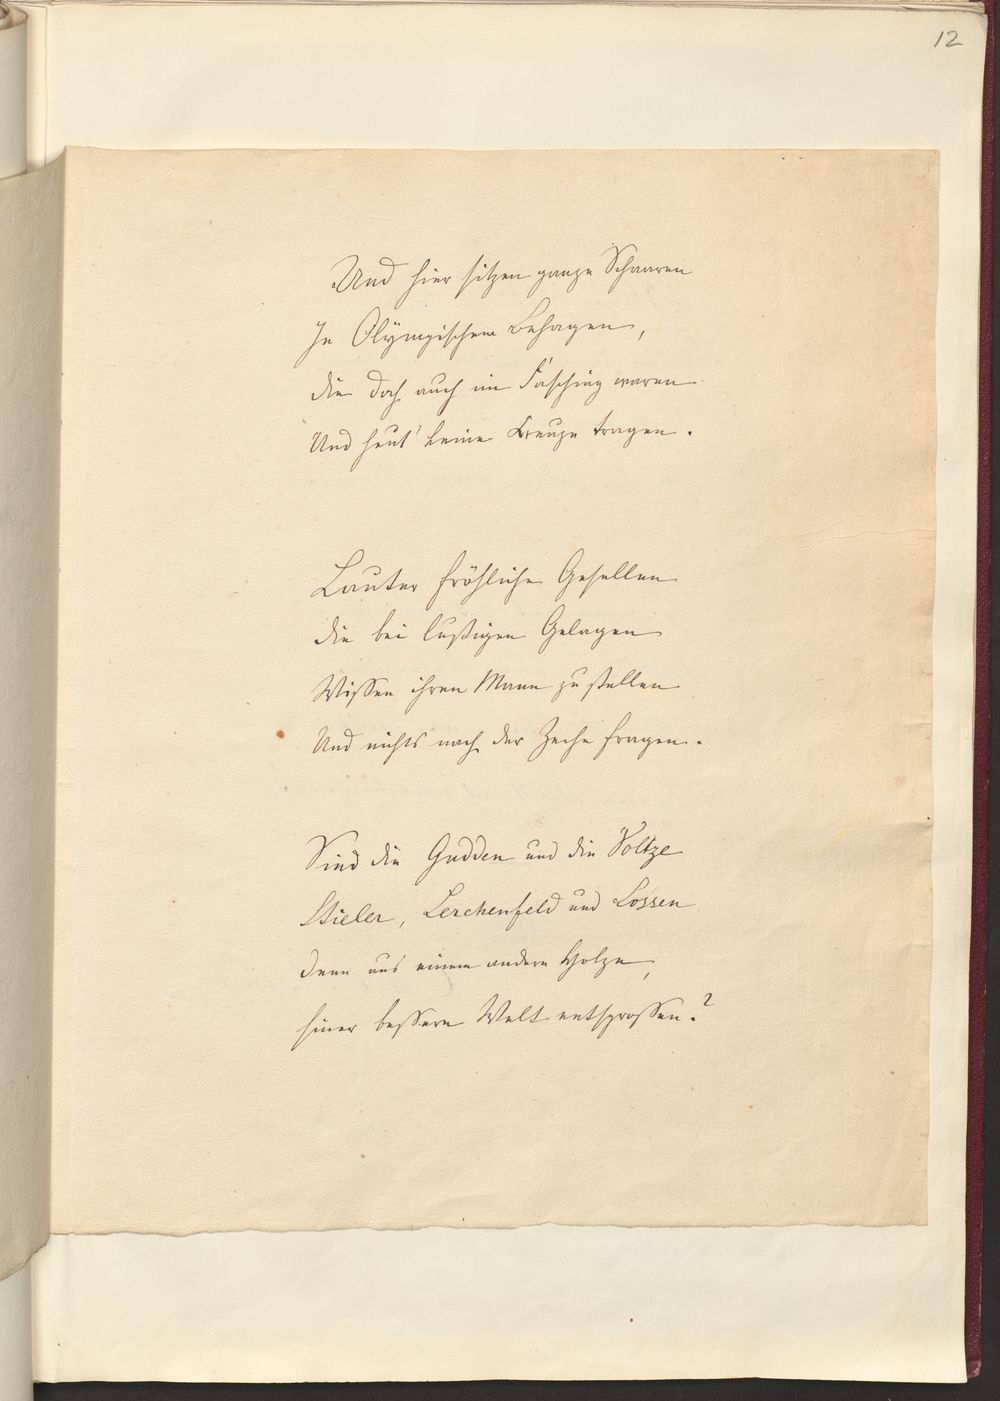 12
Und hier sitzen ganze Schaaren
In Olÿmpischem Behagen,
die doch auch im Fasching waren
Und heut' keine Kreuze tragen.
Lauter fröhliche Gesellen
die bei lustigen Gelagen
Wissen ihren Mann zu stellen
Und nichts nach der Zeche fragen.
Sind die Gudden und die Voltze
Stieler, Lerchenfeld und Lossen
denn aus einem andern Holze,
einer bessern Welt entsprossen?